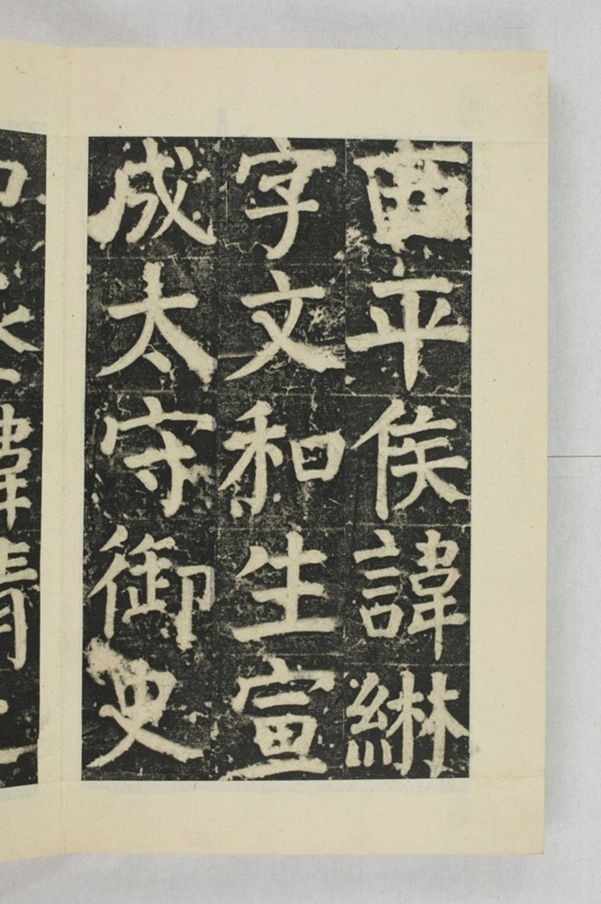 西平侯諱綝
字文和生宣
成太守御史